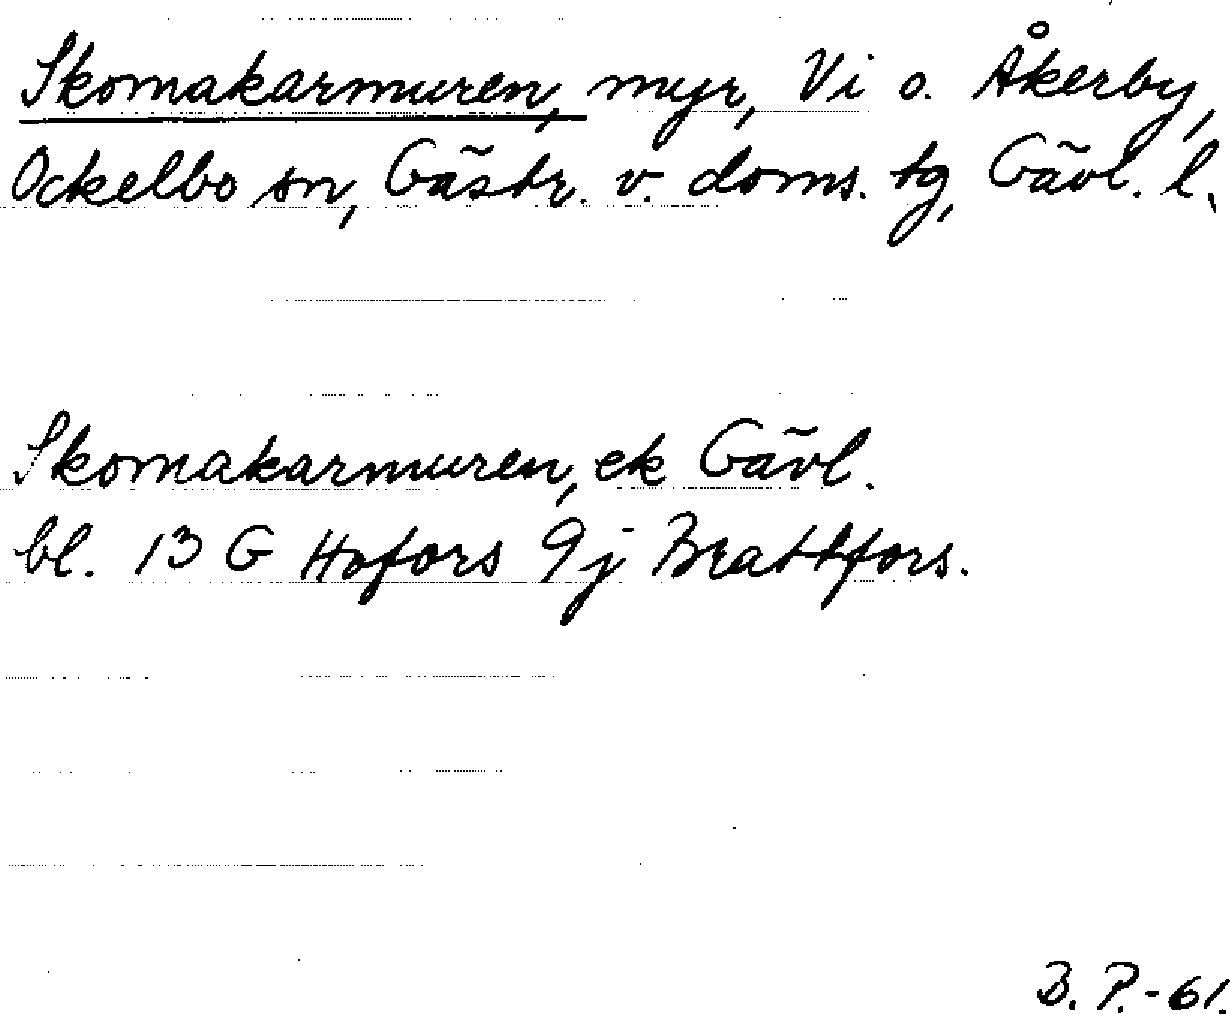 Skomakarmuren, myr, Vi o. Åkerby,
Ockelbo sn, Gästr. v. doms. tg, Gävl. l.
Skomakarmuren, ek Gävl.
bl. 13 G Hofors 9j Brattfors.
B. P. - 61.